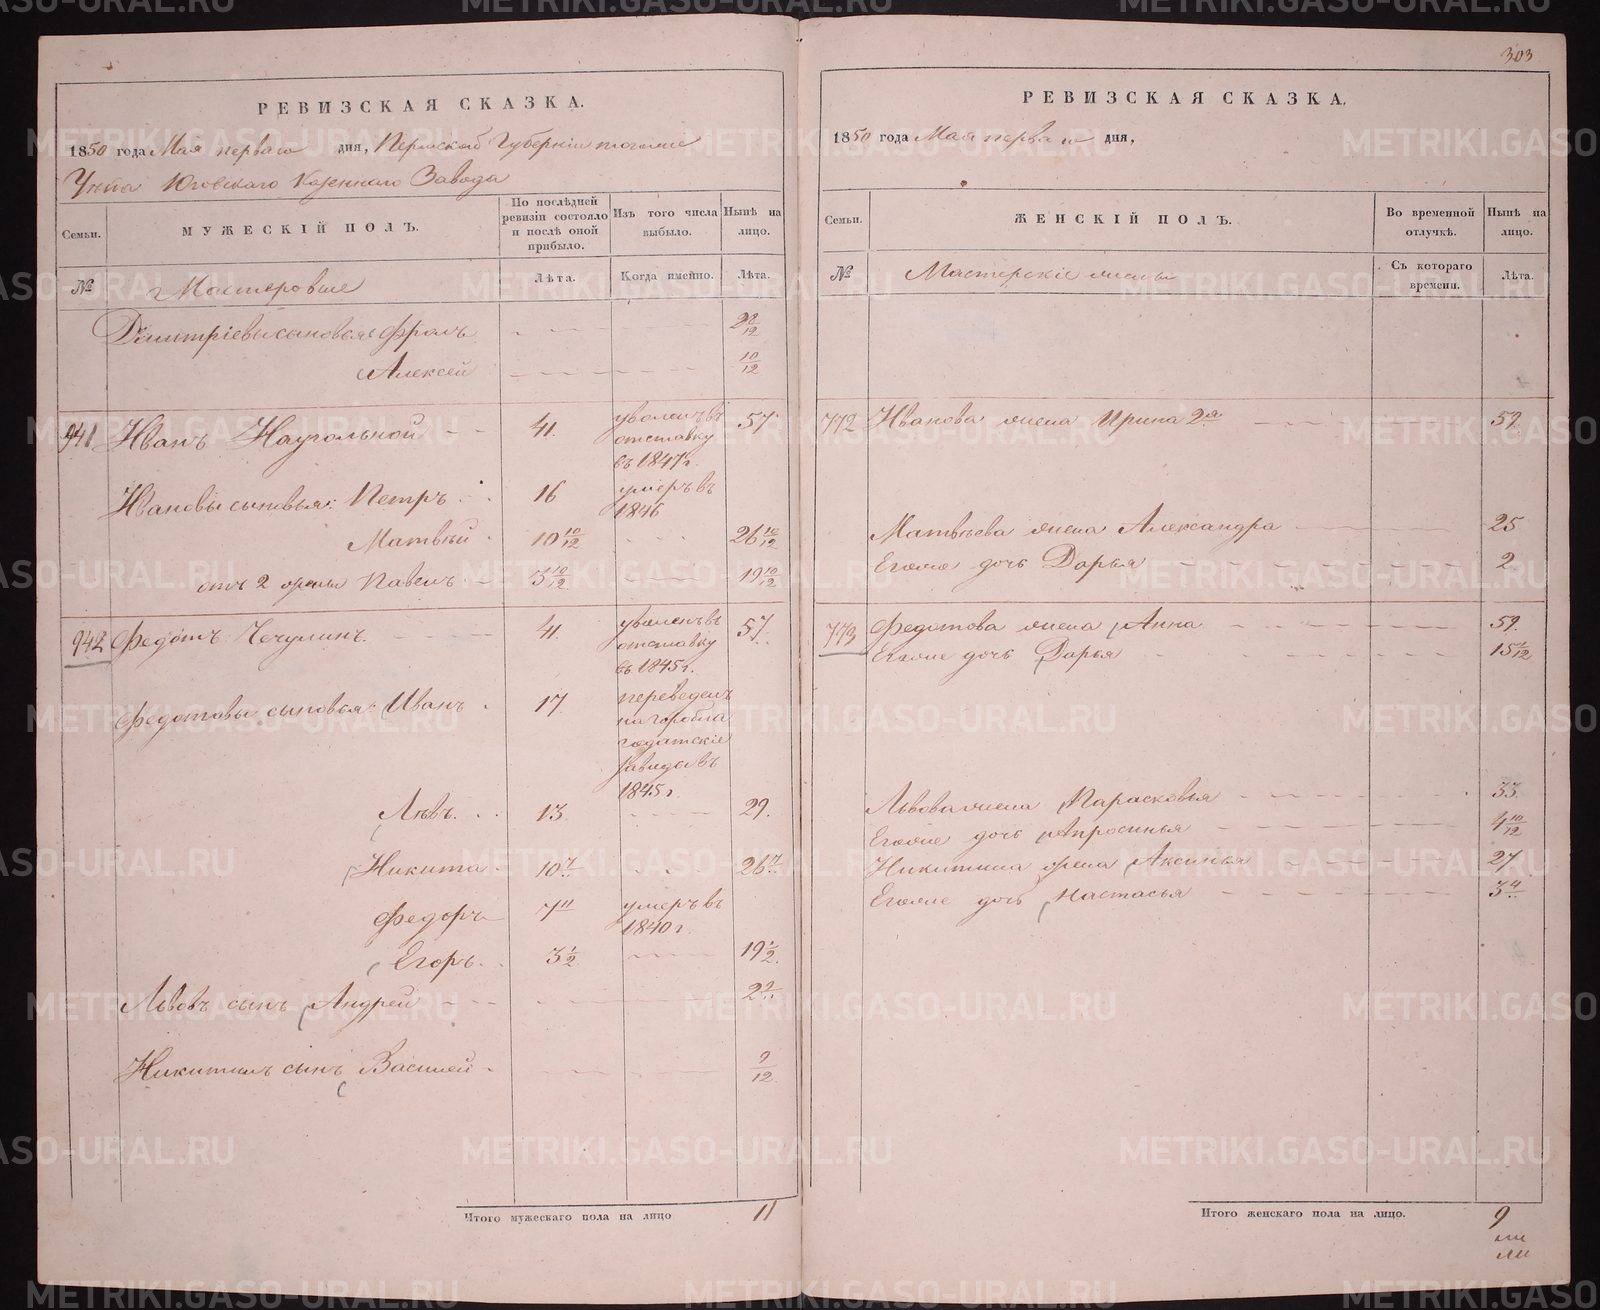 303
РЕВИЗСКАЯ СКАЗКА.
1850 года Мая перваго дня, Пермской Губерніи тогоже
Уѣзда Юговскаго Казеннаго Завода
Семьи.
МУЖЕСКІЙ ПОЛЪ.
По послѣдней ревизіи состояло и послѣ оной прибыло.
Изъ того числа выбыло.
Нынѣ на лицо.
№
Мастеровые
Лѣта.
Когда именно.
Лѣта.
Дмитріевы сыновья Фролъ 2 2/12
Алексей 10/12
941 Иванъ Наугольной 41. уволенъ въ 57
отставку
въ 1847 г.
Ивановы сыновья: Петръ 16 умеръ въ
1846
Матвѣй 10 10/12 26 10/12
отъ 2 жены Павелъ 3 10/12 19 10/12
942 Федотъ Чечулинъ. 41 уволенъ въ 57.
отставку
въ 1845 г.
Федотовы сыновья: Иванъ 17 переведенъ
на горобла
годатскіе
заводы въ
1845 г
Львъ. 13 29.
Никита 10 7/" 26 7/"
Федоръ 7 " умеръ въ
1840 г.
Егоръ. 3 1/2 19 1/2
Львовъ сынъ Андрей 2 9/"
Никитинъ сынъ Василей 9/12
Итого мужескаго пола на лицо 11
РЕВИЗСКАЯ СКАЗКА.
1850 года Мая перваго дня,
Семьи.
ЖЕНСКІЙ ПОЛЪ.
Во временной отлучкѣ.
Нынѣ на лицо.
№
Мастерскіе жены
Съ котораго времени.
Лѣта.
772 Иванова жена Ирина 2я 59
Матвѣева жена Александра 25
Егоже дочь Дарья 2
773 Федотова жена Анна 59.
Егоже дочь Дарья 15 1/12
Львова жена Парасковья 33.
Егоже дочь Апросинья 4 10/12
Никитина жена Аксинья 27
Егоже дочь Настасья 3 4/"
Итого женскаго пола на лицо. 9
METRIKI.GASO-URAL.RU